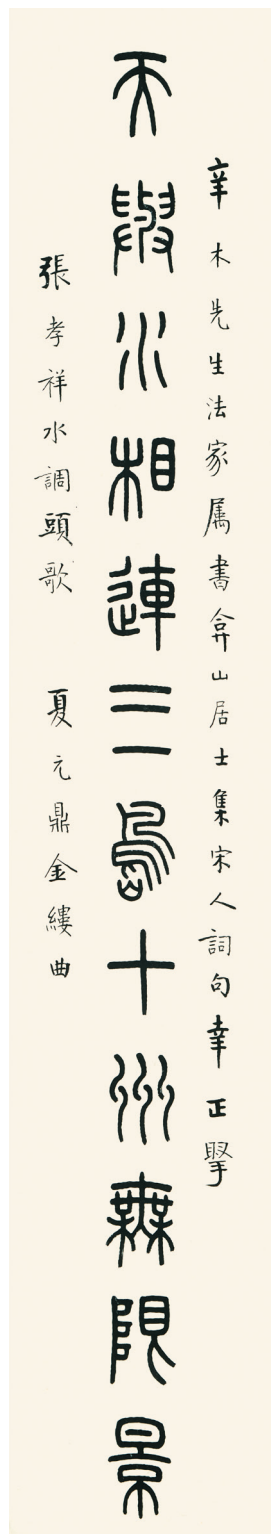 辛木先生法家属書弇山居士集宋人詞句幸正擥
天與水相連三島十州無限景
張孝祥水調頭歌 夏元鼎金縷曲